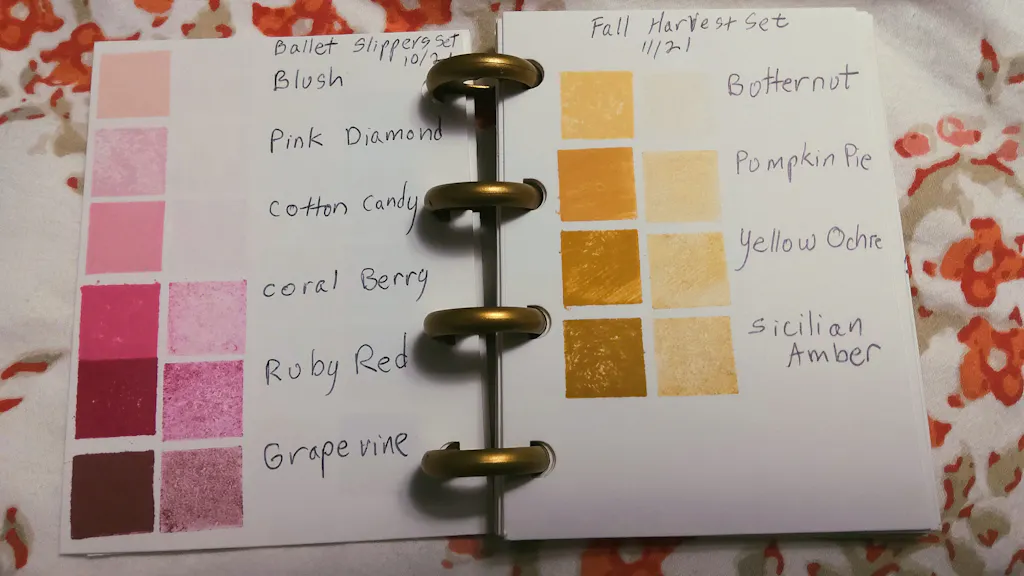 Ballet Slippers Set
10/21
Blush
Pink Diamond
Cotton Candy
Coral Berry
Ruby Red
Grapevine
Fall Harvest Set
11/21
Botternot
Pompkin Pie
Yellow Ochre
Sicilian
Amber